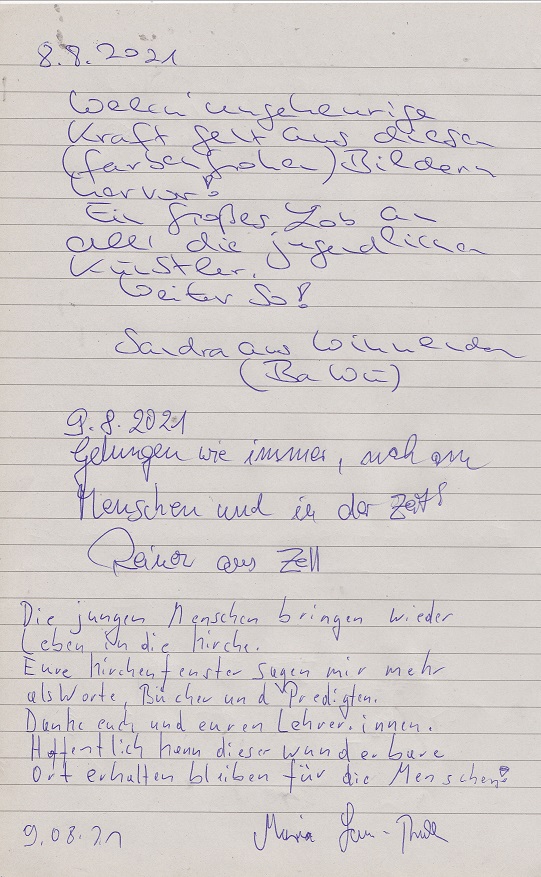 8.8.2021
Welch' ungeheurige
Kraft geht aus diesen
(farbenfrohen) Bildern
hervor!
Ein großes Lob an
all' die jugendlichen
Künstler.
Weiter So!
Sandra aus Winnenden
(BaWü)
9.8.2021
Gelungen wie immer, nah am
Menschen und in der Zeit!
Rainer aus Zell
Die jungen Menschen bringen wieder
Leben in die Kirche.
Eure Kirchenfenster sagen mir mehr
als Worte, Bücher und Predigten.
Danke euch und euren Lehrer.innen.
Hoffentlich kann dieser wunderbare
Ort erhalten bleiben für die Menschen!
9.08.21 Maria